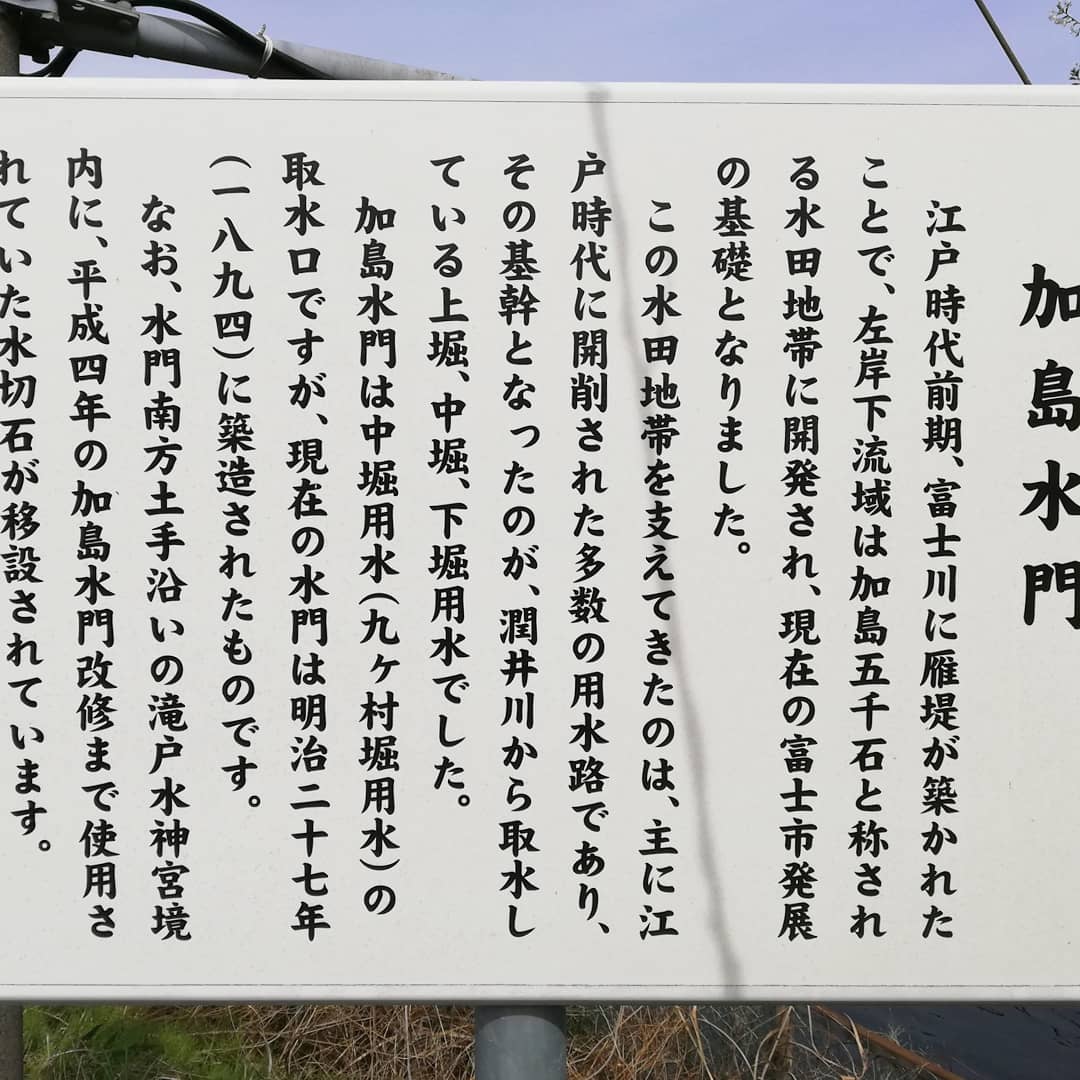 加島水門
江戸時代前期、富士川に雁堤が築かれた
ことで、左岸下流域は加島五千石と称され
る水田地帯に開発され、現在の富士市発展
の基礎となりました。
この水田地帯を支えてきたのは、主に江
戸時代に開削された多数の用水路であり、
その基幹となったのが、潤井川から取水し
ている上堀、中堀、下堀用水でした。
加島水門は中堀用水(九ヶ村堀用水)の
取水口ですが、現在の水門は明治二十七年
(一八九四)に築造されたものです。
なお、水門南方土手沿いの滝戸水神宮境
内に、平成四年の加島水門改修まで使用さ
れていた水切石が移設されています。